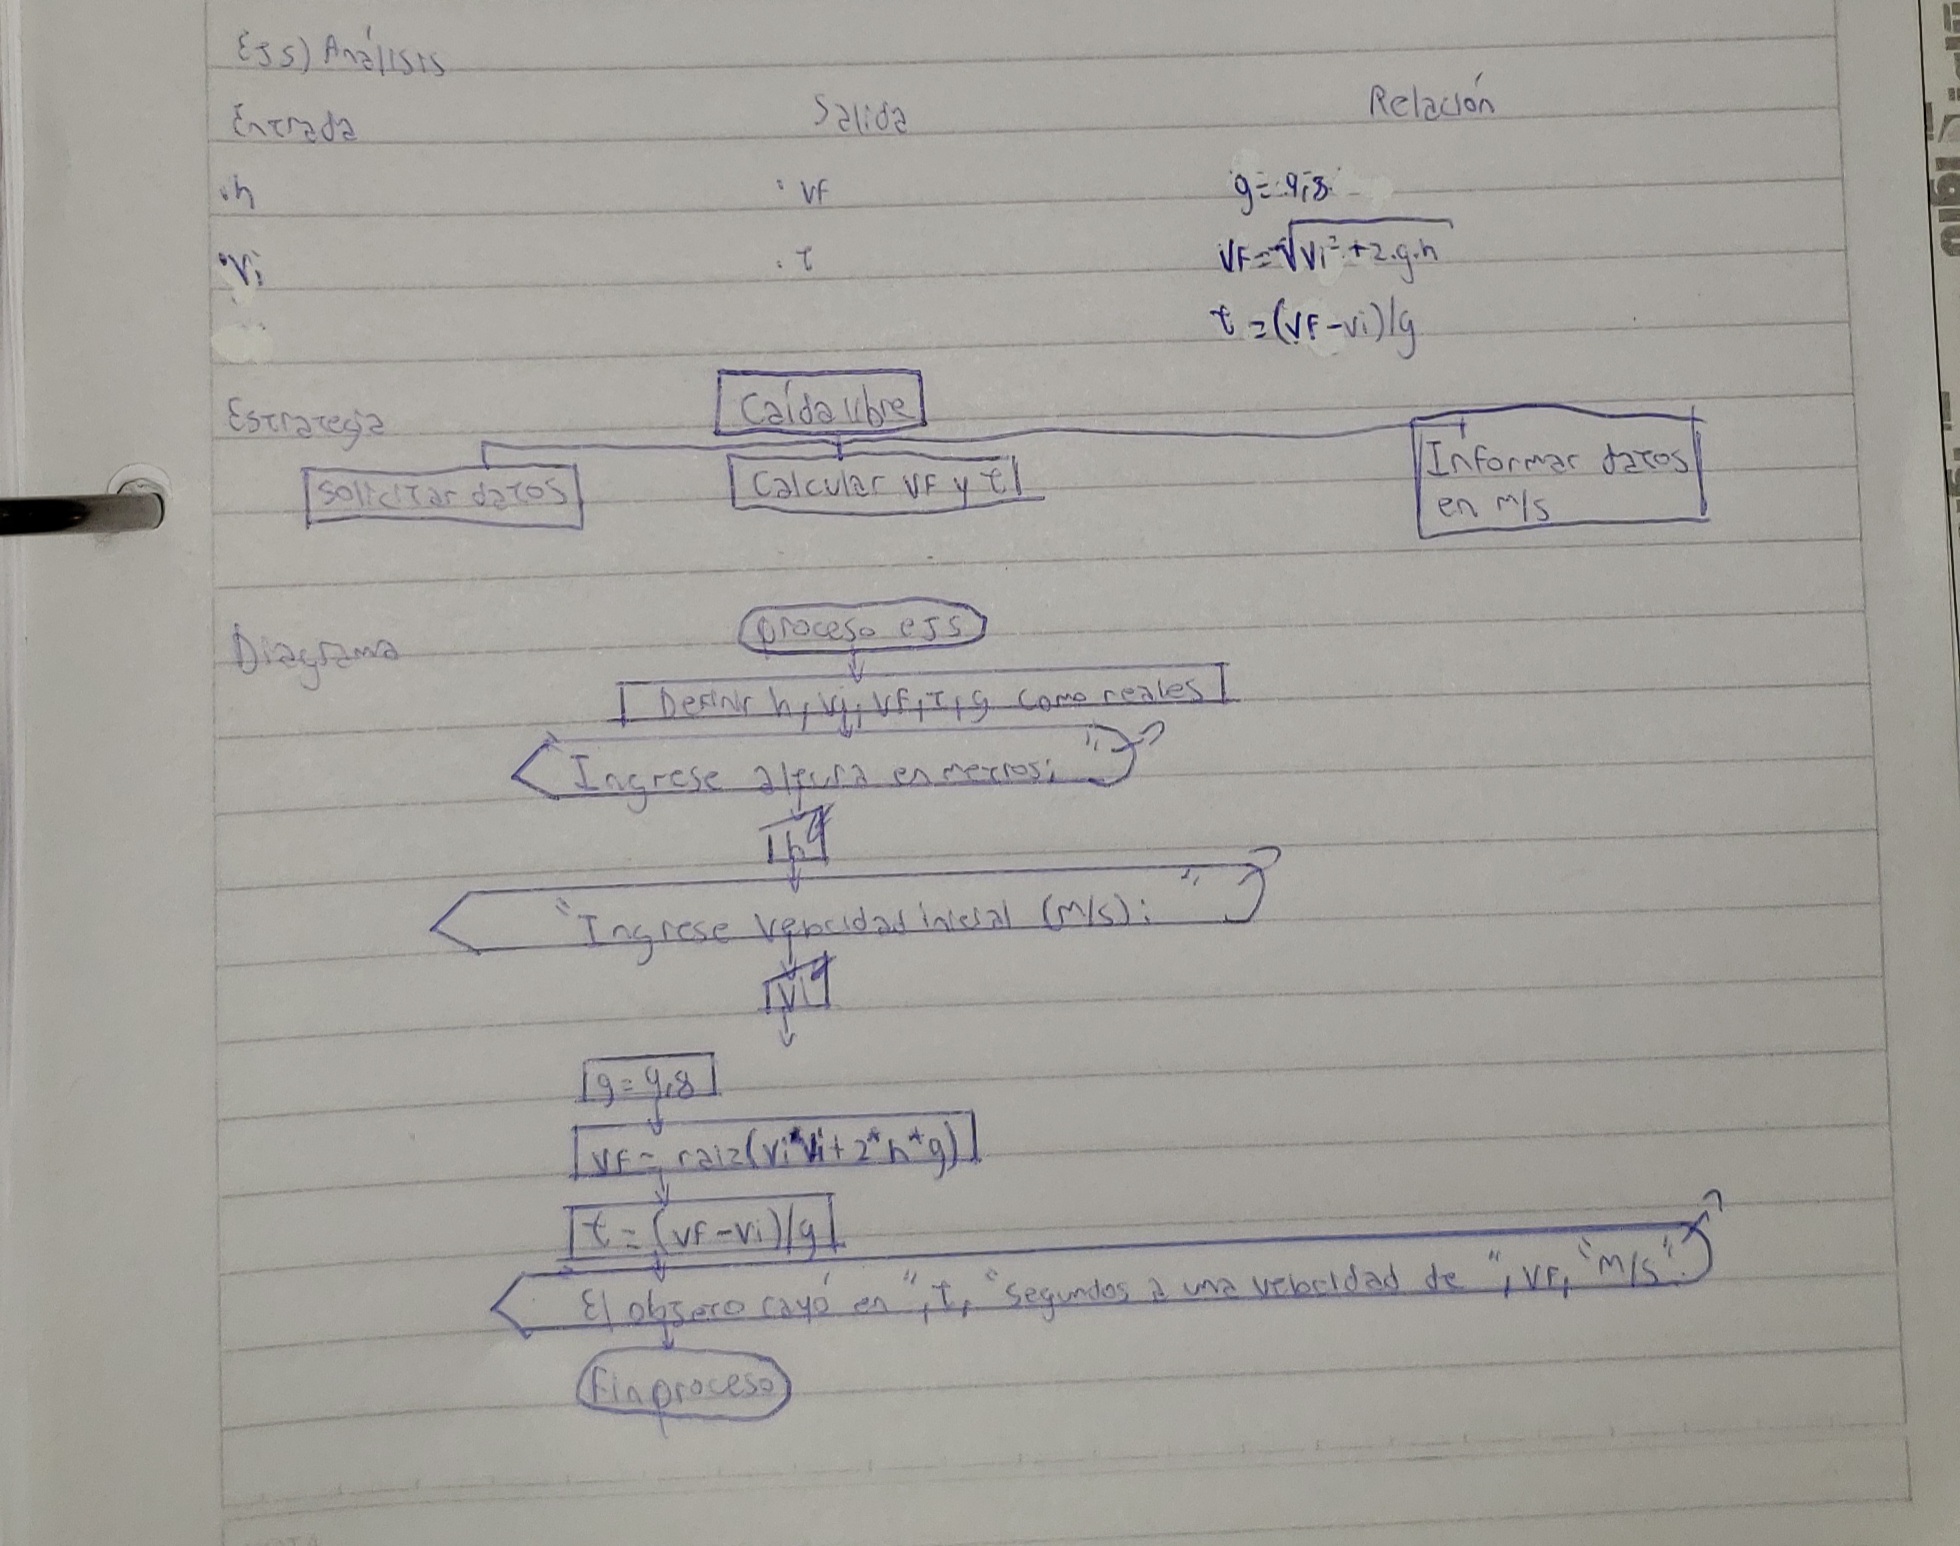 Ej5) Análisis
Entrada Salida Relación
.h . vf g = 9,8
.Vi . t VF = √Vi² + 2.g.h
t = (VF - Vi)/g
Estrategia
Caída libre
Solicitar datos Calcular VF y t Informar datos
en m/s
Diagrama
proceso ej5
Definir h, vi, VF, t, g como reales
"Ingrese altura en metros: "
h
"Ingrese velocidad inicial (m/s): "
Vi
g = 9,8
VF = raiz(Vi*Vi + 2*h*g)
t = (VF - Vi)/g
"El objeto cayó en ", t, "segundos a una velocidad de ", VF, "m/s"
Finproceso